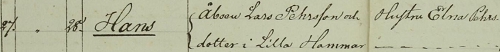 27. " 28. Hans Åboen Lars Pehrsson och Hustru Elna Pehrs
dotter i Lilla Hammar